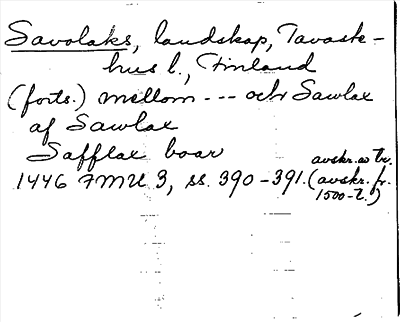 Savolaks, landskap, Tavaste-
hus l., Finland
(forts.) mellom --- och Sawlax
af Sawlax
Safflax boar
avskr. av tr.
1446 FMU 3, ss. 390-391. (avskr. fr.
1500-t.)